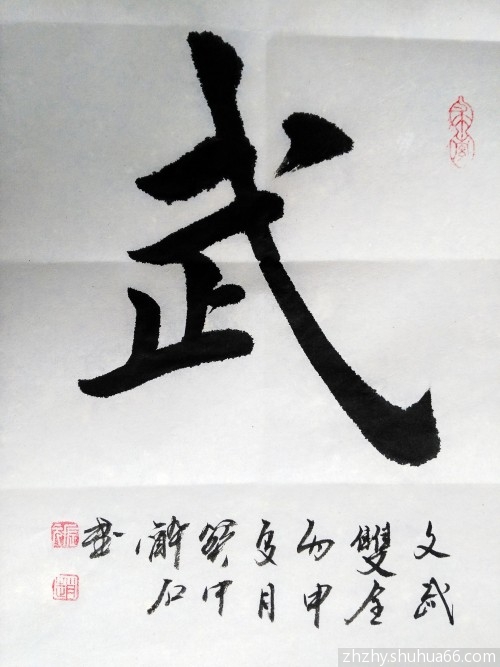 武
文武
雙全
丙申
夏月
石
書
zhzhy.shuhua66.com